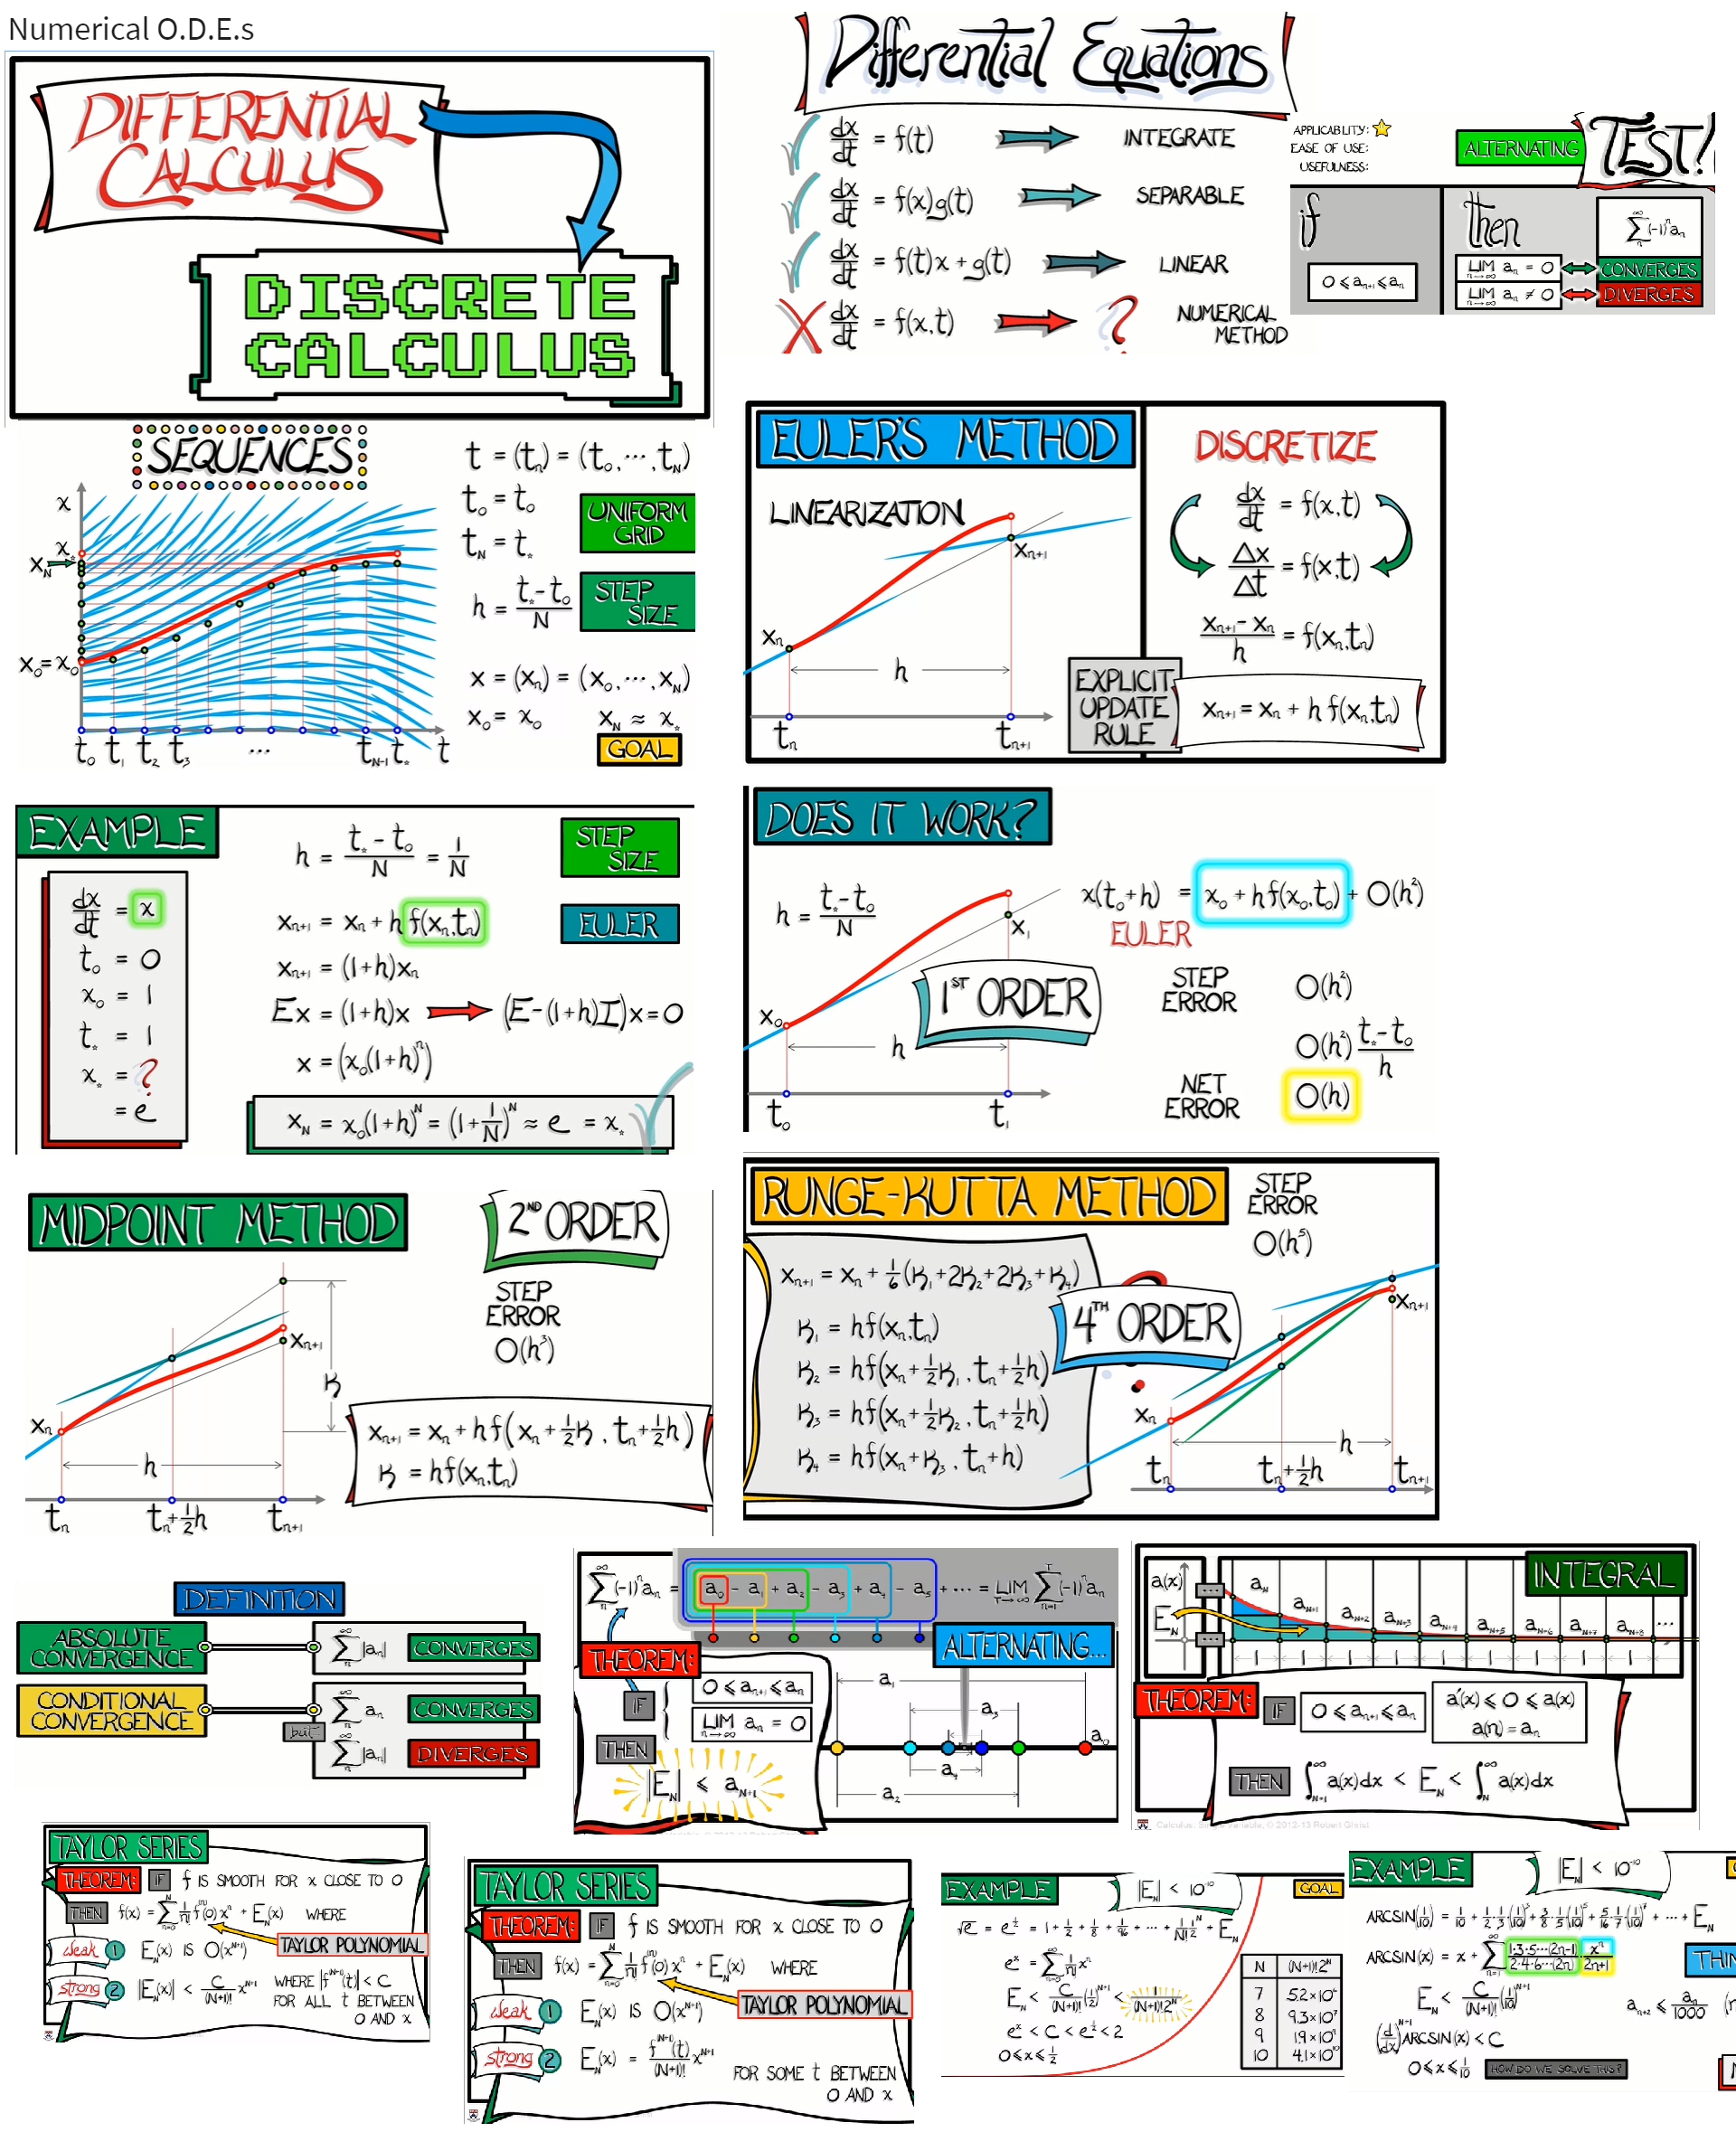 Numerical O.D.E.s
DIFFERENTIAL
CALCULUS
DISCRETE
CALCULUS
Differential Equations
dx/dt = f(t) INTEGRATE
dx/dt = f(x)g(t) SEPARABLE
dx/dt = f(t)x + g(t) LINEAR
dx/dt = f(x,t) ? NUMERICAL
METHOD
APPLICABILITY:
EASE OF USE:
USEFULNESS:
ALTERNATING TEST!
if
0 ≤ aₙ₊₁ ≤ aₙ
then
∑(-1)ⁿaₙ
LIM n→∞ aₙ = 0 CONVERGES
LIM n→∞ aₙ ≠ 0 DIVERGES
SEQUENCES
x
x⁎
x_N
x₀=x₀
t₀ t₁ t₂ t₃ ... t_N-1 t⁎ t
t = (tₙ) = (t₀,...,t_N)
t₀ = t₀
t_N = t⁎
UNIFORM
GRID
h = (t⁎-t₀)/N
STEP
SIZE
x = (xₙ) = (x₀,...,x_N)
x₀ = x₀ x_N ≈ x⁎
GOAL
EULER'S METHOD
LINEARIZATION
xₙ₊₁
xₙ
h
tₙ tₙ₊₁
DISCRETIZE
dx/dt = f(x,t)
Δx/Δt = f(x,t)
(xₙ₊₁ - xₙ)/h = f(xₙ,tₙ)
EXPLICIT
UPDATE
RULE
xₙ₊₁ = xₙ + h f(xₙ,tₙ)
EXAMPLE
dx/dt = x
t₀ = 0
x₀ = 1
t⁎ = 1
x⁎ = ?
= e
h = (t⁎ - t₀)/N = 1/N
STEP
SIZE
xₙ₊₁ = xₙ + h f(xₙ,tₙ)
EULER
xₙ₊₁ = (1+h)xₙ
Ex = (1+h)x (E-(1+h)I)x=0
x = (x₀(1+h)ⁿ)
x_N = x₀(1+h)^N = (1+1/N)^N ≈ e = x⁎
DOES IT WORK?
h = (t⁎-t₀)/N
x(t₀+h) = x₀ + h f(x₀,t₀) + O(h²)
EULER
x₁
1ST ORDER
x₀
h
t₀ t₁
STEP
ERROR
O(h²)
O(h²) (t⁎-t₀)/h
NET
ERROR
O(h)
MIDPOINT METHOD
2ND ORDER
STEP
ERROR
O(h³)
xₙ₊₁
K
xₙ
h
tₙ tₙ+½h tₙ₊₁
xₙ₊₁ = xₙ + hf(xₙ+½K, tₙ+½h)
K = hf(xₙ,tₙ)
RUNGE-KUTTA METHOD
STEP
ERROR
O(h⁵)
xₙ₊₁ = xₙ + 1/6(K₁+2K₂+2K₃+K₄)
K₁ = hf(xₙ,tₙ)
K₂ = hf(xₙ+½K₁, tₙ+½h)
K₃ = hf(xₙ+½K₂, tₙ+½h)
K₄ = hf(xₙ+K₃, tₙ+h)
4TH ORDER
xₙ₊₁
xₙ
h
tₙ tₙ+½h tₙ₊₁
DEFINITION
ABSOLUTE
CONVERGENCE
∑|aₙ| CONVERGES
CONDITIONAL
CONVERGENCE
∑aₙ CONVERGES
but
∑|aₙ| DIVERGES
∑(-1)ⁿaₙ = a₀ - a₁ + a₂ - a₃ + a₄ - a₅ + ... = LIM T→∞ ∑(-1)ⁿaₙ
ALTERNATING...
THEOREM:
IF
0 ≤ aₙ₊₁ ≤ aₙ
LIM n→∞ aₙ = 0
THEN
|E_N| ≤ a_N+1
a₁
a₃
a₀
a₄
a₂
INTEGRAL
a(x)
E_N
a_N a_N+1 a_N+2 a_N+3 a_N+4 a_N+5 a_N+6 a_N+7 a_N+8 ...
1 1 1 1 1 1 1 1 1
THEOREM:
IF
0 ≤ aₙ₊₁ ≤ aₙ
a'(x) ≤ 0 ≤ a(x)
a(n) = aₙ
THEN
∫_N+1^∞ a(x)dx < E_N < ∫_N^∞ a(x)dx
Calculus: Single Variable, © 2012-13 Robert Ghrist
TAYLOR SERIES
THEOREM: IF f IS SMOOTH FOR x CLOSE TO 0
THEN f(x) = ∑ 1/n! f⁽ⁿ⁾(0) xⁿ + E_N(x) WHERE
TAYLOR POLYNOMIAL
weak 1 E_N(x) IS O(x^N+1)
strong 2 |E_N(x)| < C/(N+1)! x^N+1 WHERE |f^(N+1)(t)| < C
FOR ALL t BETWEEN
0 AND x
TAYLOR SERIES
THEOREM: IF f IS SMOOTH FOR x CLOSE TO 0
THEN f(x) = ∑ 1/n! f⁽ⁿ⁾(0) xⁿ + E_N(x) WHERE
TAYLOR POLYNOMIAL
weak 1 E_N(x) IS O(x^N+1)
strong 2 E_N(x) = f^(N+1)(t)/(N+1)! x^N+1
FOR SOME t BETWEEN
0 AND x
EXAMPLE
|E_N| < 10⁻¹⁰
GOAL
√e = e^½ = 1 + 1/2 + 1/8 + 1/48 + ... + 1/N! 1/2^N + E_N
eˣ = ∑ 1/n! xⁿ
E_N < C/(N+1)! (1/2)^N+1 < 1/(N+1)!2^N
eˣ < C < e^½ < 2
0≤x≤½
N (N+1)!2^N
7 5.2×10⁶
8 9.3×10⁷
9 1.9×10⁹
10 4.1×10¹⁰
EXAMPLE
|E_N| < 10⁻¹⁰
ARCSIN(1/10) = 1/10 + 1/2 1/3 (1/10)³ + 3/8 1/5 (1/10)⁵ + 5/16 1/7 (1/10)⁷ + ... + E_N
ARCSIN(x) = x + ∑ 1·3·5···(2n-1)/2·4·6···(2n) xⁿ/2n+1
E_N < C/(N+1)! (1/10)^N+1
aₙ₊₂ ≤ aₙ/1000
(d/dx)^N+1 ARCSIN(x) < C
0≤x≤1/10
HOW DO WE SOLVE THIS?